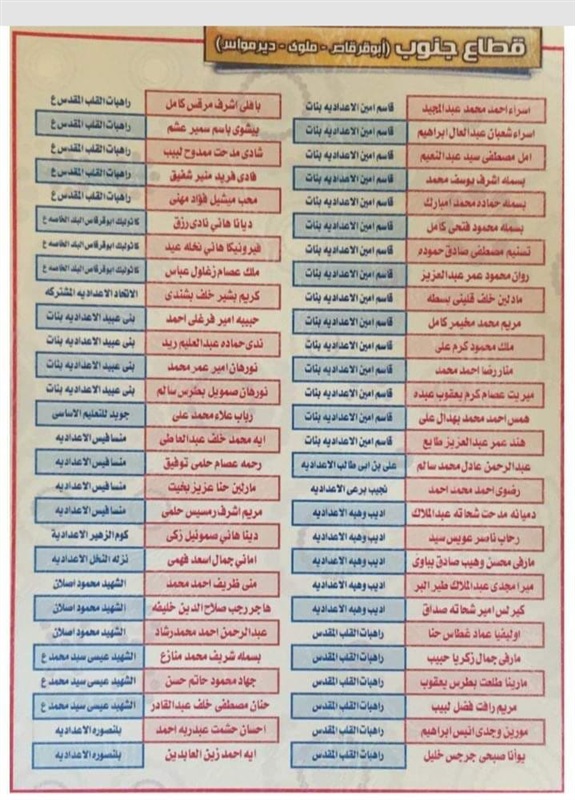 قطاع جنوب (أبوقرقاص - ملوى - ديرمواس)
اسراء احمد محمد عبدالمجيد قاسم امين الاعداديه بنات
اسراء شعبان عبدالعال ابراهيم قاسم امين الاعداديه بنات
امل مصطفى سيد عبدالنعيم قاسم امين الاعداديه بنات
بسمله اشرف يوسف محمد قاسم امين الاعداديه بنات
بسمله حماده محمد امبارك قاسم امين الاعداديه بنات
بسمله محمود فتحى كامل قاسم امين الاعداديه بنات
تسنيم مصطفى صادق حموده قاسم امين الاعداديه بنات
روان محمود عمر عبدالعزيز قاسم امين الاعداديه بنات
مادلين خلف قلينى بسطه قاسم امين الاعداديه بنات
مريم محمد مخيمر كامل قاسم امين الاعداديه بنات
ملك محمود كرم على قاسم امين الاعداديه بنات
منار رضا احمد محمد قاسم امين الاعداديه بنات
ميريت عصام كرم يعقوب عبده قاسم امين الاعداديه بنات
همس احمد محمد بهدال على قاسم امين الاعداديه بنات
هند عمر عبدالعزيز طايع قاسم امين الاعداديه بنات
عبدالرحمن عادل محمد سالم على بن ابى طالب الاعداديه
رضوى احمد محمد احمد نجيب برعى الاعداديه
دميانه مدحت شحاته عبدالملاك اديب وهبه الاعداديه
رحاب ناسر عويس سيد اديب وهبه الاعداديه
مارفى محسن وهيب صادق بباوى اديب وهبه الاعداديه
ميرا مجدى عبدالملاك طير البر اديب وهبه الاعداديه
كيرلس امير شحاته صداق اديب وهبه الاعداديه
اوليفيا عماد غطاس حنا راهبات القلب المقدس
مارفى جمال زكريا حبيب راهبات القلب المقدس
مارينا طلعت بطرس يعقوب راهبات القلب المقدس
مريم رافت فضل لبيب راهبات القلب المقدس
مورين وجدى انيس ابراهيم راهبات القلب المقدس
يوانا صبحى جرجس خليل راهبات القلب المقدس
بافلى اشرف مرقس كامل راهبات القلب المقدس ع
بيشوى باسم سمير عشم راهبات القلب المقدس ع
شادى مدحت ممدوح لبيب راهبات القلب المقدس ع
فادى فريد منير شفيق راهبات القلب المقدس ع
محب ميشيل فؤاد مهنى راهبات القلب المقدس ع
ديانا هاني نادى رزق كاثوليك ابوقرقاص البلد الخاصه ع
فيرونيكا هاني نخله عبد كاثوليك ابوقرقاص البلد الخاصه ع
ملك عصام زغلول عباس كاثوليك ابوقرقاص البلد الخاصه ع
كريم بشير خلف بشندى الاتحاد الاعداديه المشتركه
حبيبه امير فرغلى احمد بنى عبيد الاعداديه بنات
ندى حماده عبدالعليم ريد بنى عبيد الاعداديه بنات
نورهان امير عمر محمد بنى عبيد الاعداديه بنات
نورهان صمويل بطرس سالم بنى عبيد الاعداديه بنات
رباب علاء محمد على جويد للتعليم الاساسى
ايه محمد خلف عبدالعاطى منسافيس الاعداديه
رحمه عصام حلمى توفيق منسافيس الاعداديه
مارلين حنا عزيز بخيت منسافيس الاعداديه
مريم اشرف رمسيس حلمى منسافيس الاعداديه
دينا هاني صموئيل زكى كوم الزهير الاعدادية
امانى جمال اسعد فهمى نزله النخل الاعداديه
منى ظريف احمد محمد الشهيد محمود اصلان
هاجر رجب صلاح الدين خليفه الشهيد محمود اصلان
عبدالرحمن احمد محمد رشاد الشهيد محمود اصلان
بسمله شريف محمد منازع الشهيد عيسى سيد محمد ع
جهاد محمود حاتم حسن الشهيد عيسى سيد محمد ع
حنان مصطفى خلف عبدالقادر الشهيد عيسى سيد محمد ع
احسان حشمت عبدربه احمد بلنصوره الاعداديه
ايه احمد زين العابدين بلنصوره الاعداديه